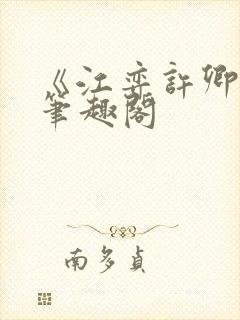 《江弈許卿
筆趣閣
南多貞